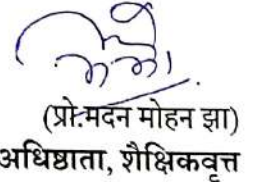 (प्रो.मदन मोहन झा)
अधिष्ठाता, शैक्षिकवृत्त